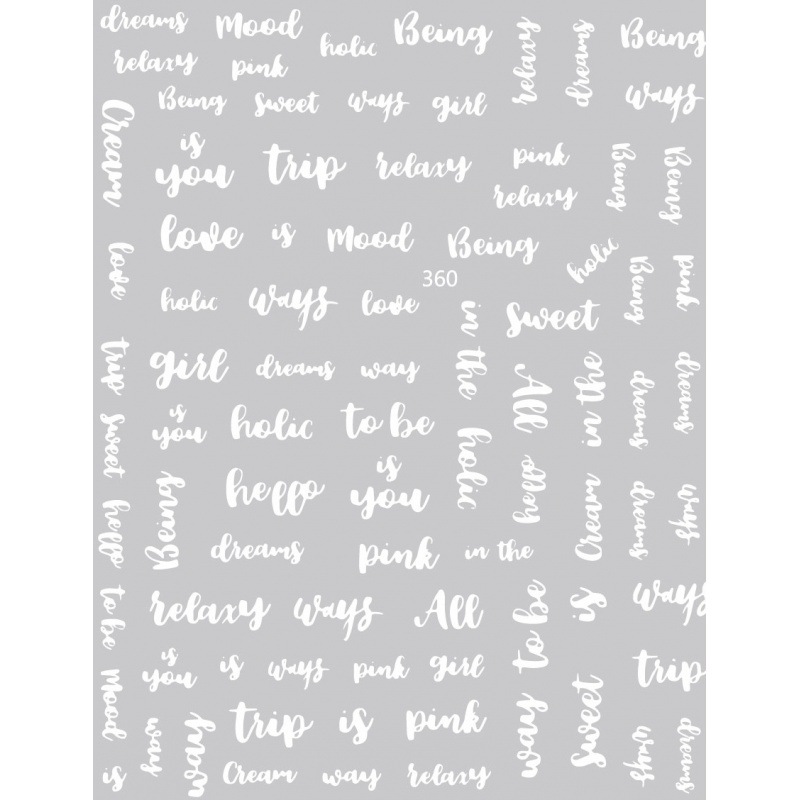 dreams Mood holic Being relaxy dreams Being
relaxy pink
Being sweet ways girl ways
Cream
is
you trip relaxy pink Being Being
relaxy
love is Mood Being holic
love
360
holic ways love in the sweet Being pink
trip girl dreams way All in the dreams dreams
sweet
is
you holic to be holic
hello Being hello is
you hello Cream dreams ways
dreams pink in the
to be relaxy ways All to be is ways
Mood
is
you is ways pink girl way sweet trip
way way trip is pink ways dreams
is Cream way relaxy